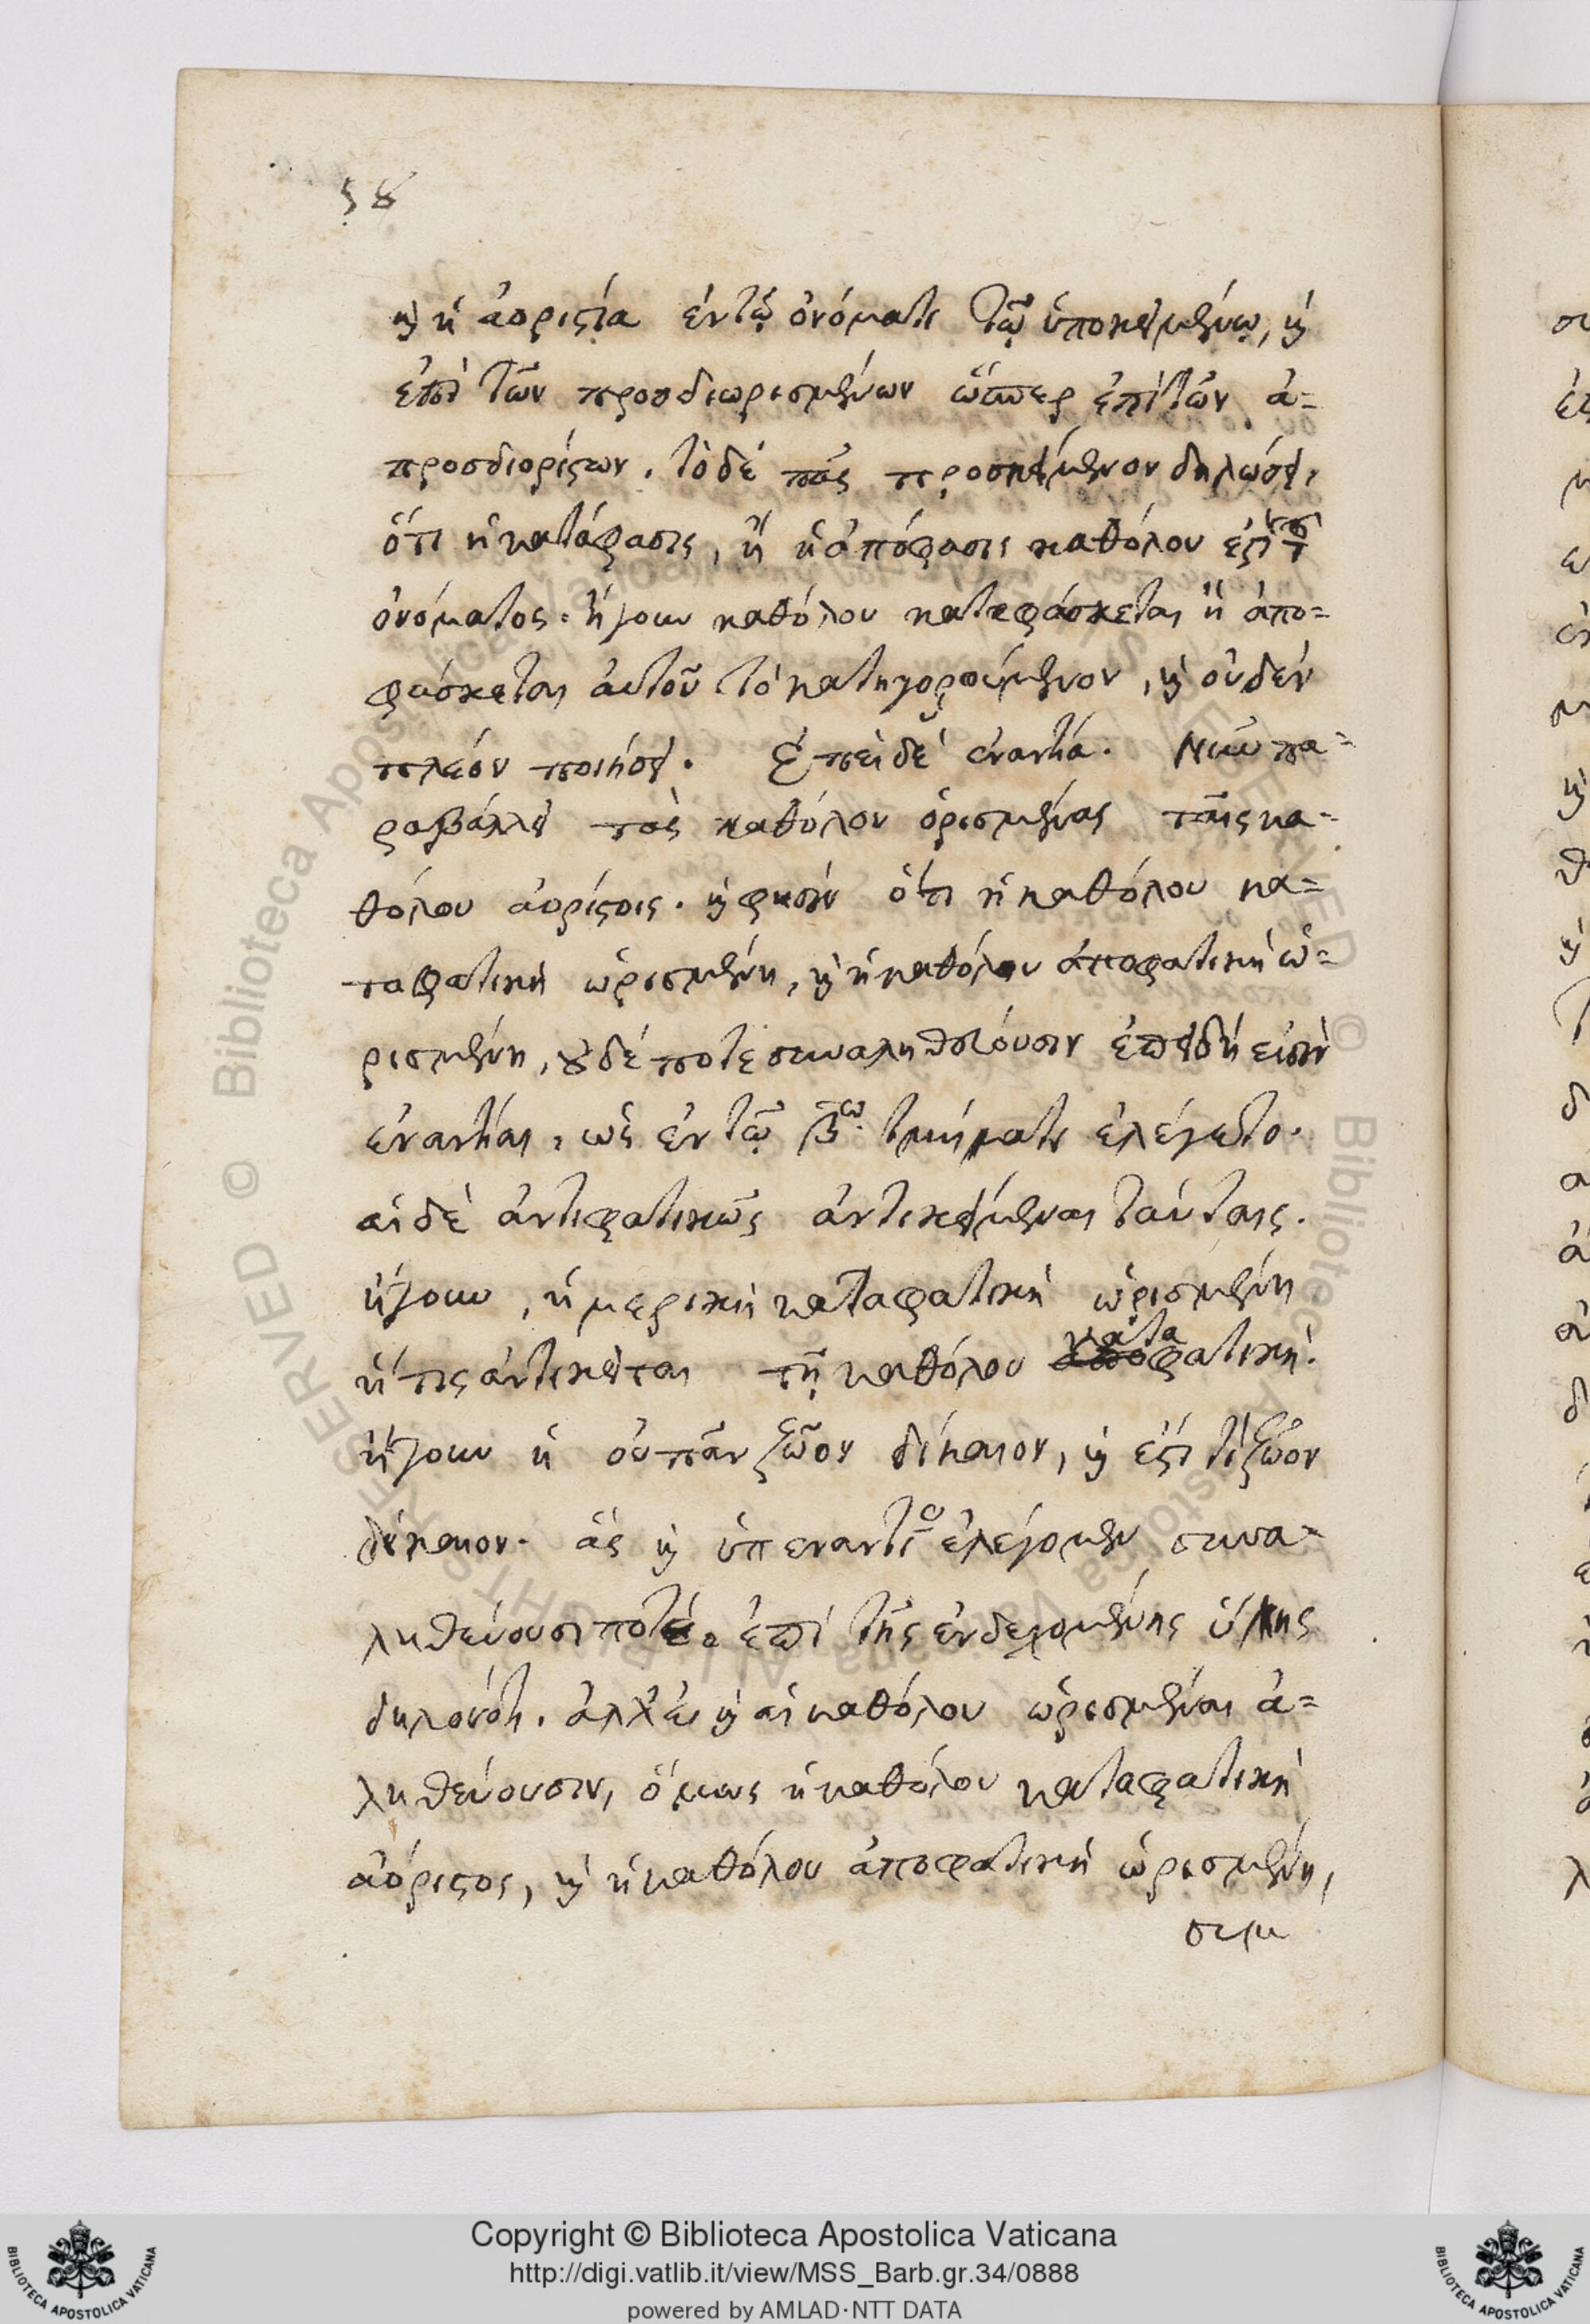 58
καὶ ἡ ἀοριστία ἐν τῷ ὀνόματι τῷ ὑποκειμένῳ, καὶ
ἐπὶ τῶν προσδιωρισμένων ὥσπερ ἐπὶ τῶν ἀ=
προσδιορίστων. τὸ δὲ πᾶς προσκείμενον δηλώσει,
ὅτι ἡ κατάφασις, ἢ ἡ ἀπόφασις καθόλου ἐστὶ τοῦ
ὀνόματος. ἤγουν καθόλου καταφάσκεται ἢ ἀπο=
φάσκεται αὐτοῦ τὸ κατηγορούμενον, καὶ οὐδὲν
πλέον ποιήσει. Ἐπεὶ δὲ ἐναντία. Νῦν πα=
ραβάλλει τὰς καθόλου ὁρισμένας ταῖς κα=
θόλου ἀορίστοις. καὶ φησὶν ὅτι ἡ καθόλου κα=
ταφατικὴ ὡρισμένη, καὶ ἡ καθόλου ἀποφατικὴ ὡ=
ρισμένη, οὐδέποτε συναληθεύουσιν ἐπειδή εἰσιν
ἐναντίαι, ὡς ἐν τῷ βῳ. τμήματι ἐλέγετο.
αἱ δὲ ἀντιφατικῶς ἀντικείμεναι ταύταις.
ἤγουν, ἡ μερικὴ καταφατικὴ ὡρισμένη
ἥτις ἀντικεῖται τῇ καθόλου καταφατικῇ.
ἤγουν ἡ οὐ πᾶν ζῶον δίκαιον, καὶ ἔστι τὶ ζῶον
δίκαιον. ἃς καὶ ὑπεναντίο ἐλέγομεν συνα=
ληθεύουσι ποτέ. ἐπὶ τῆς ἐνδεχομένης ὕλης
δηλονότι. ἀλλ' εἰ καὶ αἱ καθόλου ὡρισμέναι ἀ=
ληθεύουσιν, ὅμως ἡ καθόλου καταφατικὴ
ἀόριστος, καὶ ἡ καθόλου ἀποφατικὴ ὡρισμένη,
Copyright © Biblioteca Apostolica Vaticana
http://digi.vatlib.it/view/MSS_Barb.gr.34/0888
powered by AMLAD·NTT DATA